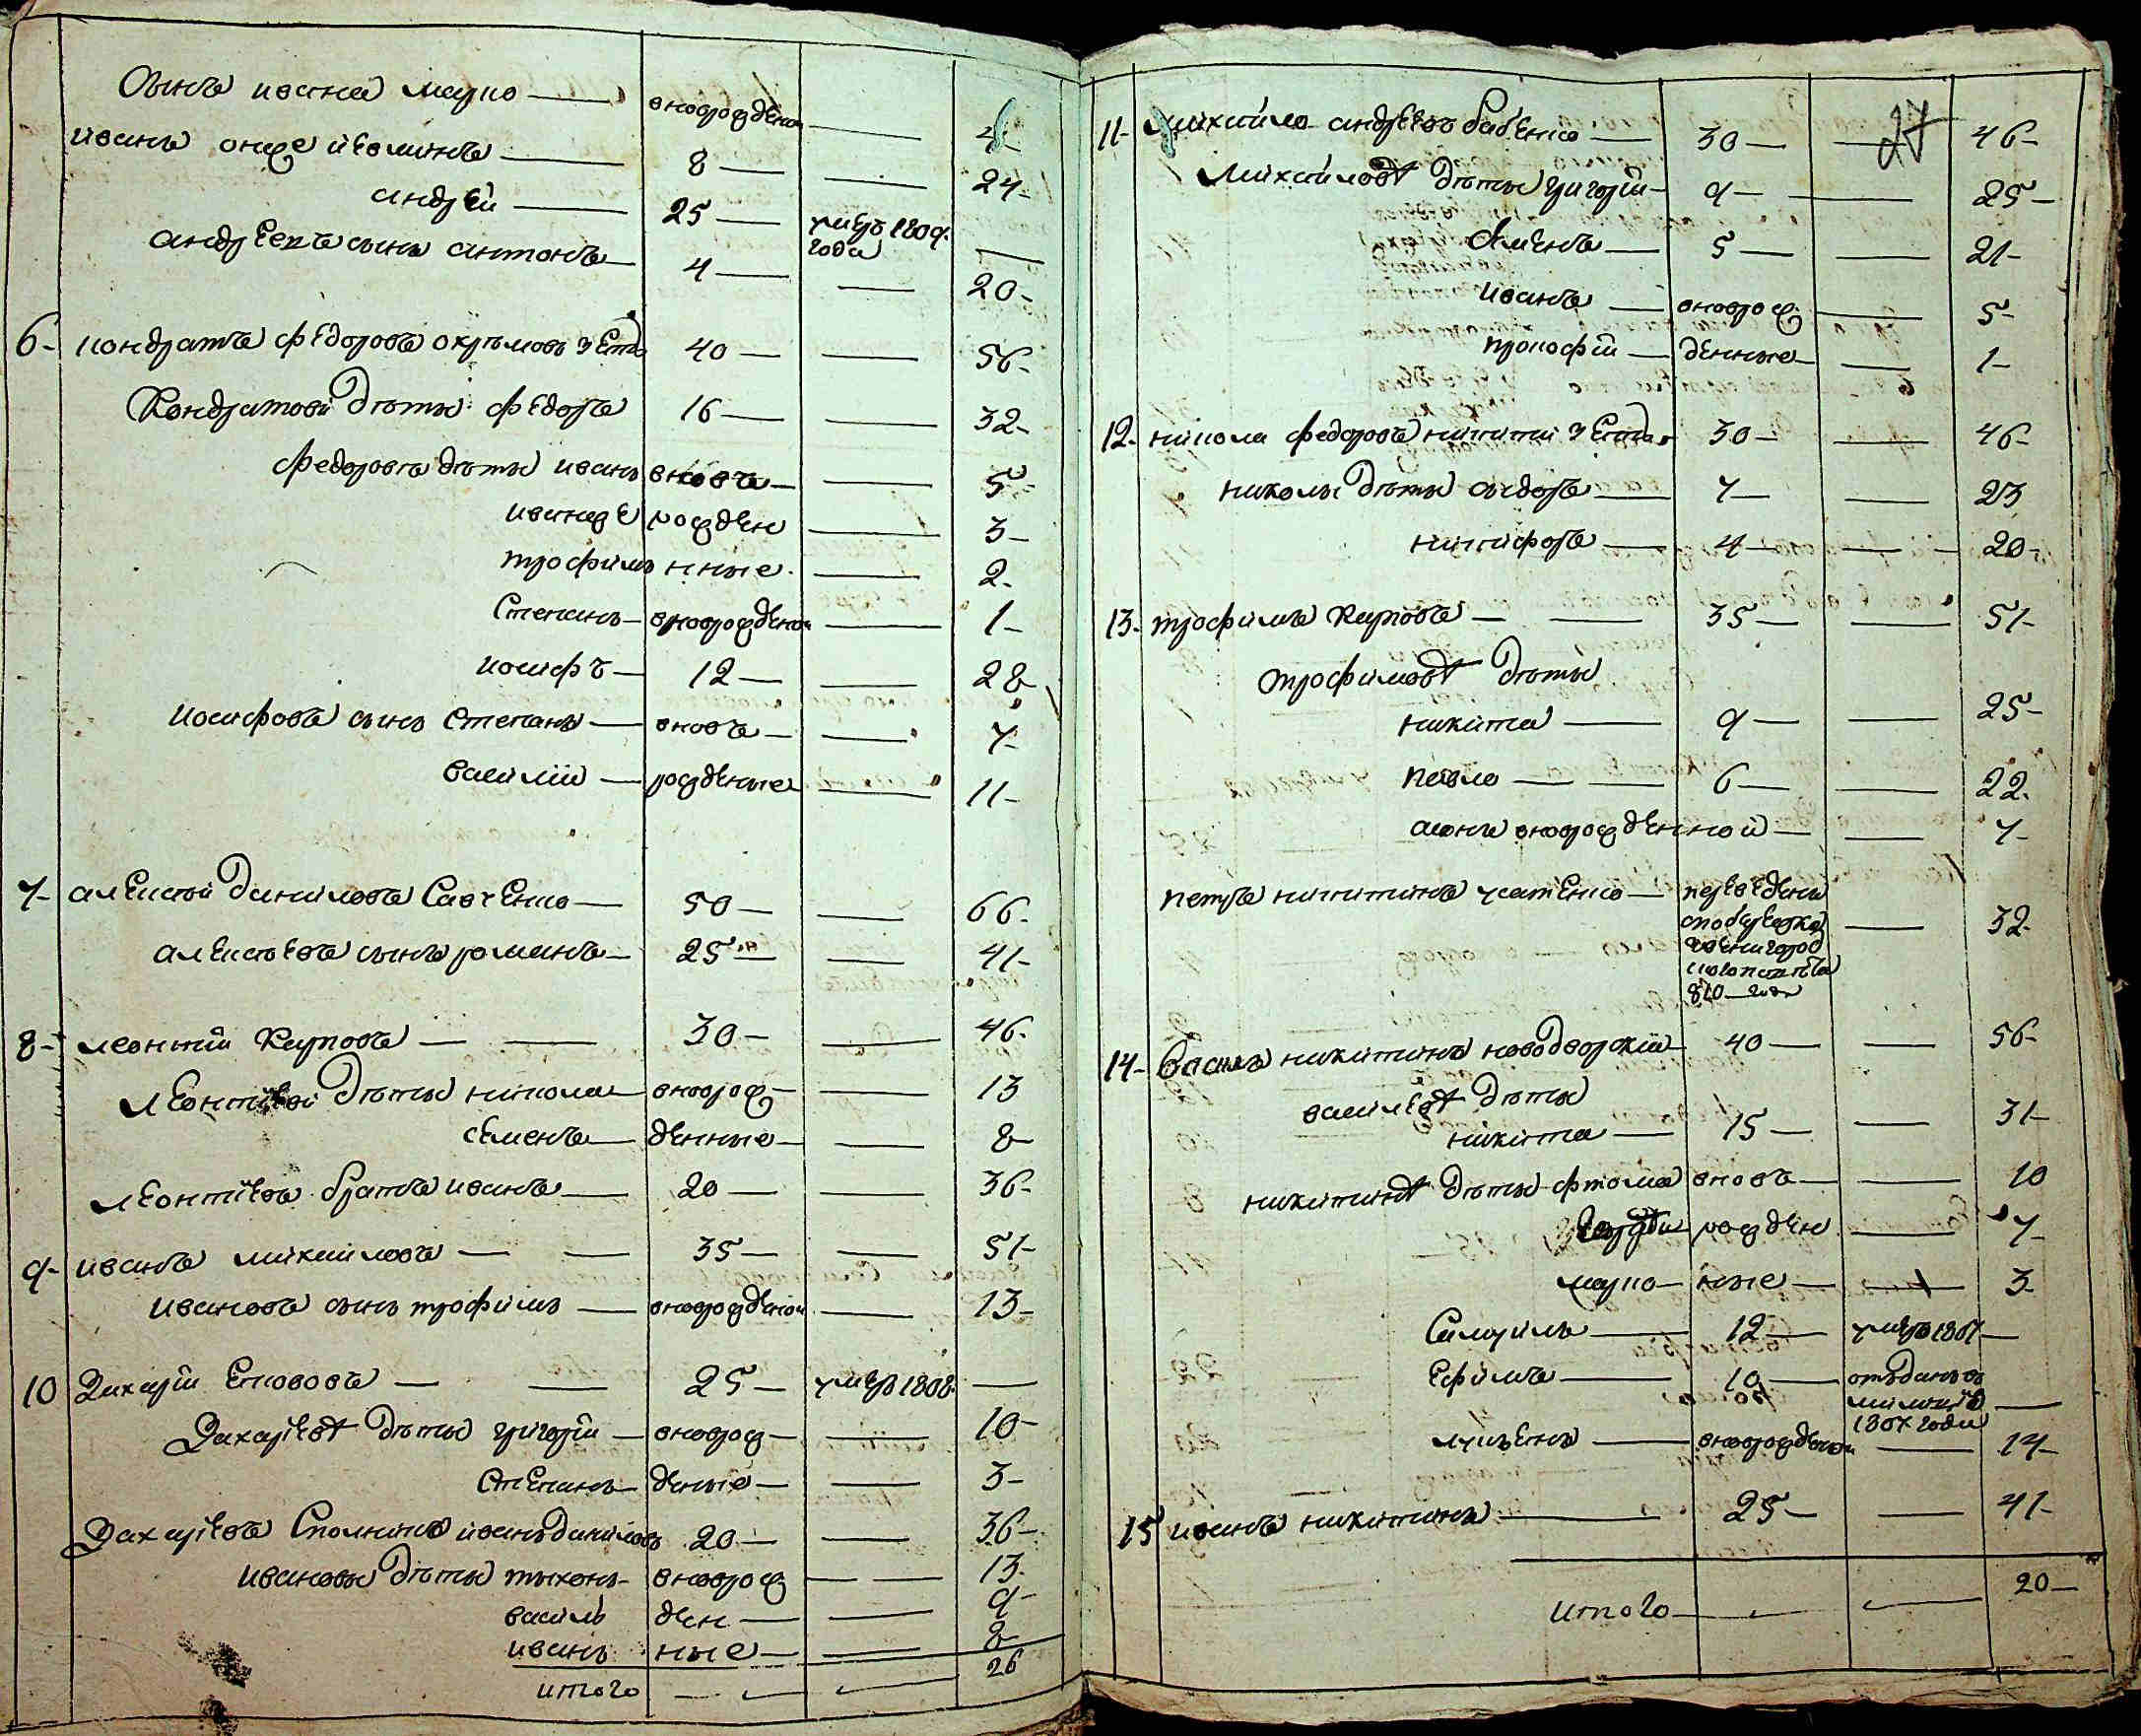 Сынъ ивана марко — вноворожденой — 4-
иванъ онуфрейевъ сынъ — 8 — — 24-
андрей — 25 — умеръ 1809. года —
андреевъ сынъ антонъ — 4 — — 20-
6- кондратъ федоровъ — 40 — — 56-
Кондратовы дѣты федоръ 16 — — 32-
федоровы дѣты иванъ вновъ — — 5-
рожден — 3-
трофимъ нные. — 2.
Степанъ — вноворожденой — 1-
иосифъ — 12 — — 28
иосифовъ сынъ Степанъ — вновъ — — 7-
василій — рожденые — 11-
7- алексей даниловъ Савченко — 50 — — 66-
алексѣевъ сынъ романъ — 25 — — 41-
8- леонтій Карповъ — — 30 — — 46-
леонтиевы дѣты никола — вноворож — — 13
семенъ — денные — — 8
леонтіевъ братъ иванъ — 20 — — 36-
9- иванъ михайловъ — — 35 — — 51-
ивановъ сынъ трофимъ — вноворожденой — 13-
10 Захарій — — 25 — умеръ 1808. —
Захарієвы дѣты григорій — вноворож — — 10-
Степанъ — деные — — 3-
Захарієвъ иванъ даниловъ 20 — — 36-
ивановы дѣты тыхонъ — вноворож — — 13.
василь ден — — 9-
иванъ ные — — 8
итого — — — 26
27
11- михайло андреевъ бабенко — 30 — — 46-
Михайловы дѣты григорій — 9 — — 25-
Семенъ — 5 — — 21-
иванъ — вноворож — 5-
прокофій — денные — — 1-
12- никола федоровъ 30 — — 46-
николы дѣты сидоръ — 7 — — 23
никифоръ — 4 — — 20-
13- трофимъ Карповъ — — 35 — — 51-
трофимовы дѣты
никита — 9 — — 25-
павло — — 6 — — 22.
вноворожденной — — 7-
петръ никитинъ усатенко — переведенъ
— 32.
звенигород
810 — года
14- Василь никитинъ новодворскій — 40 — — 56-
василевы дѣты
никита — 15 — — 31-
никитины дѣты фтома вновъ — — 10
рожден — 7-
марко — ные — — 3-
Самуилъ — 12 — умеръ 1807 —
ефимъ — 10 — отъданъ въ
милицію —
1807 года
лукъянъ — вноворожденой — 14-
15 иванъ никитинъ — 25 — — 41-
итого — — — 20 —